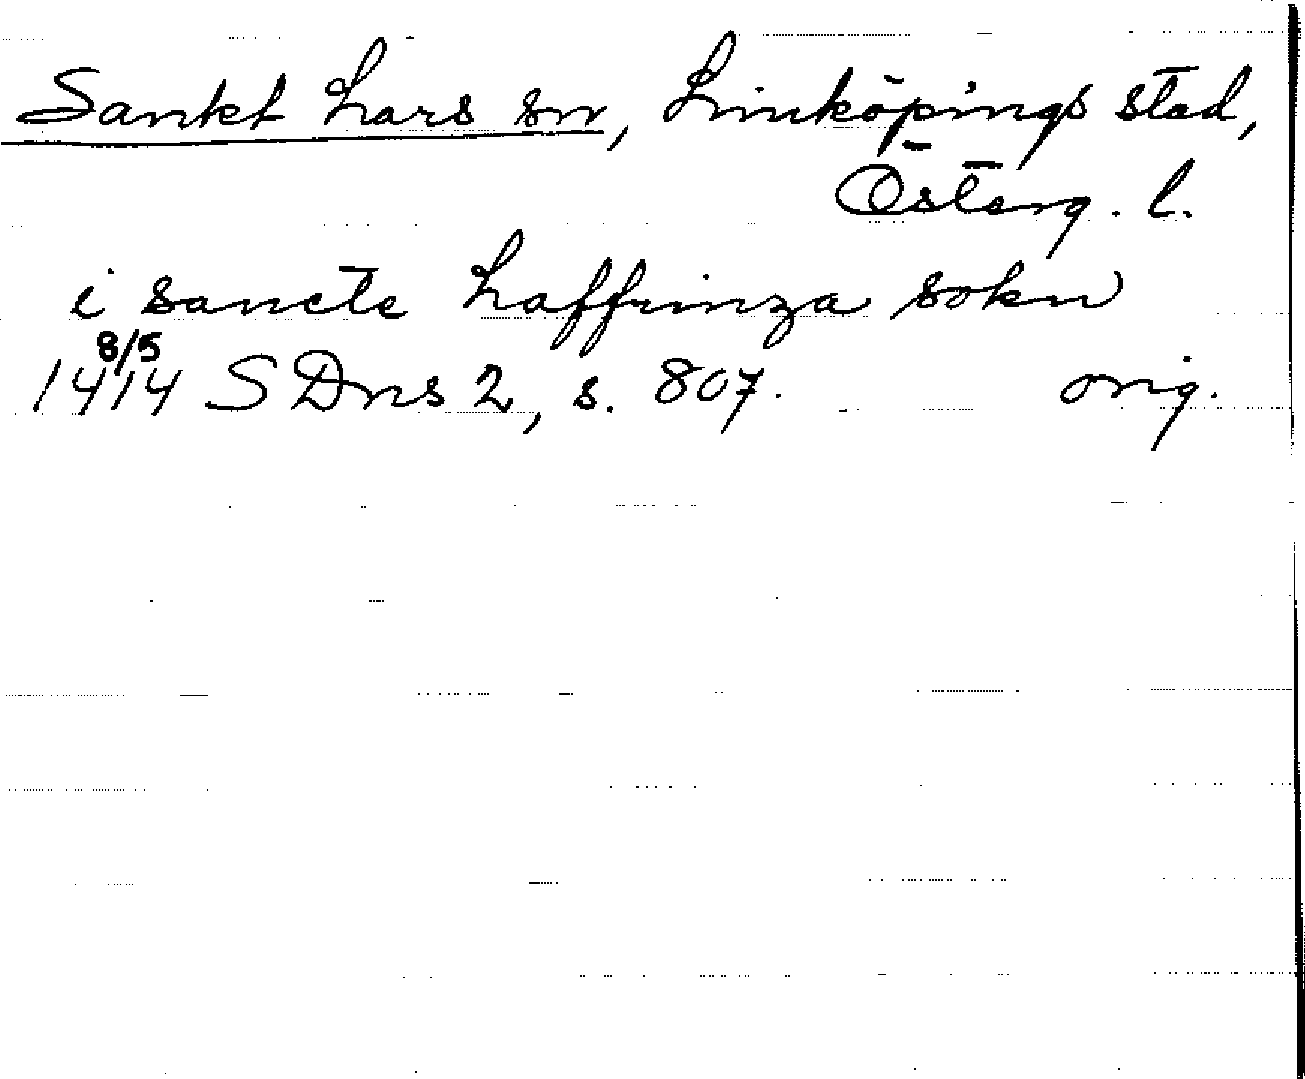 Sankt Lars sn, Linköpings stad,
Österg. l.
i sancte Laffrinza sokn
8/5
1414 SDns 2, s. 807. orig.